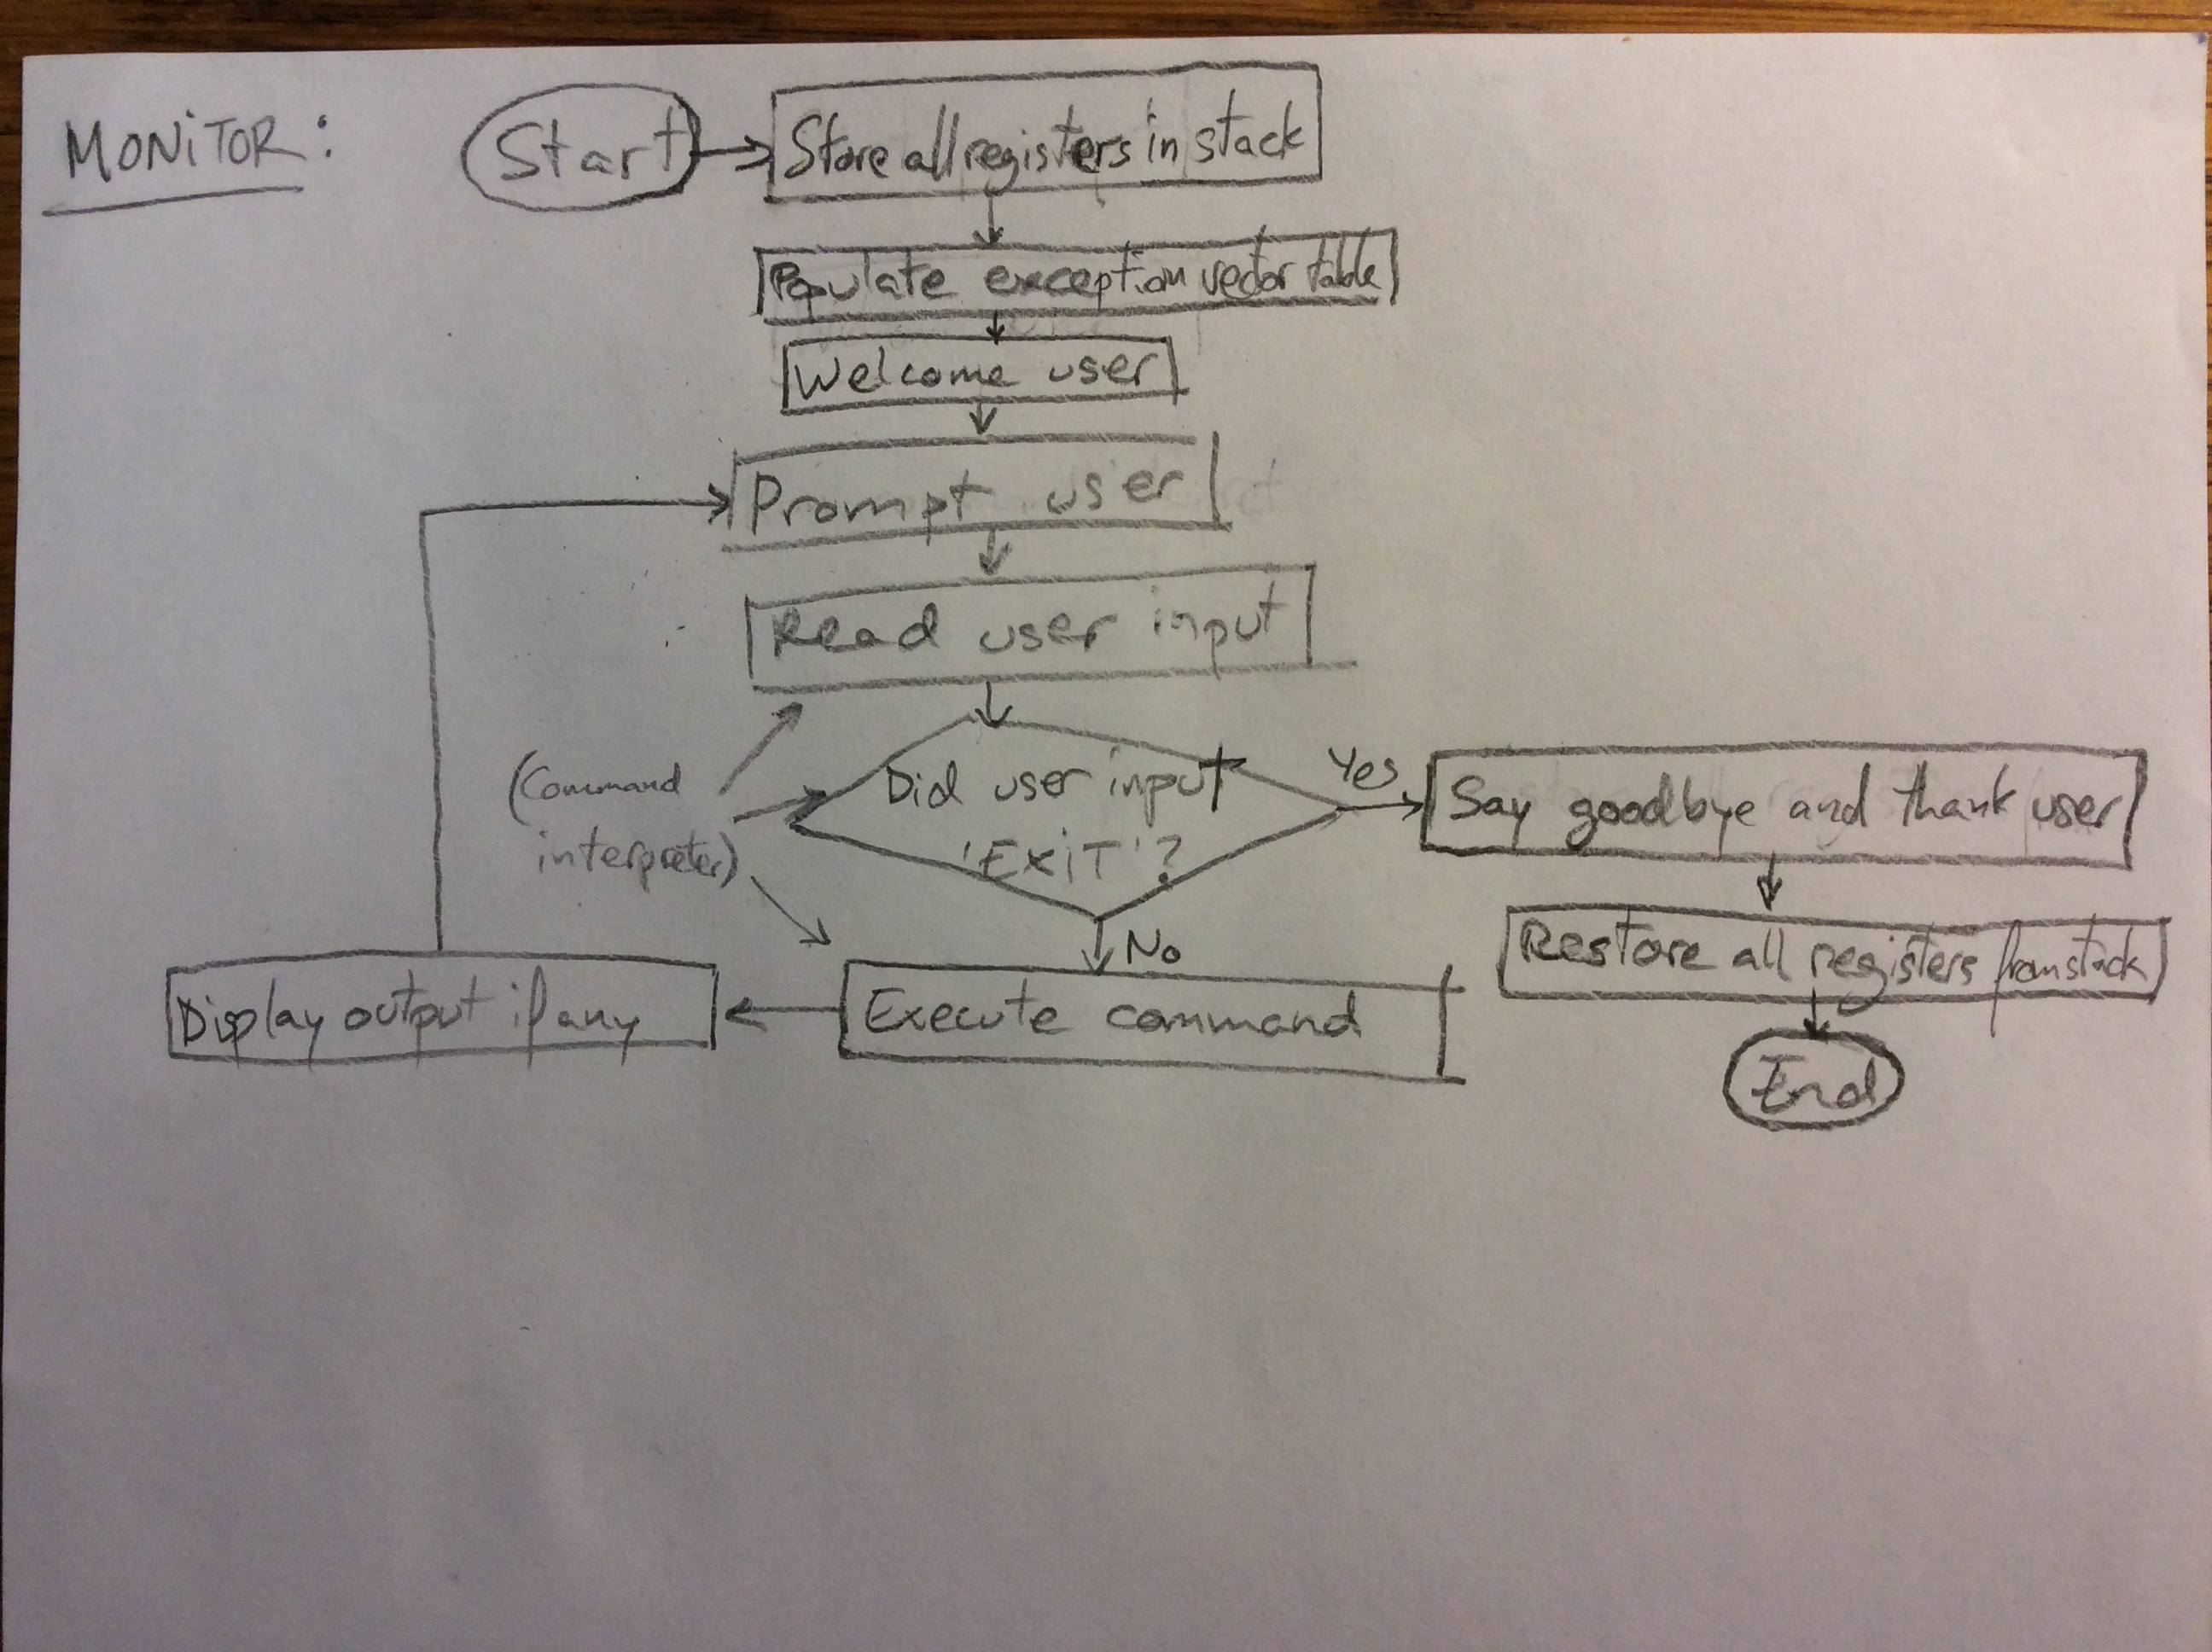 MONiTOR:
Start
Store all registers in stack
Populate exception vector table
Welcome user
Prompt user
Read user input
(Command
interpreter)
Did user input
'EXiT'?
Yes
Say goodbye and thank user
Restore all registers from stack
End
No
Execute command
Display output if any